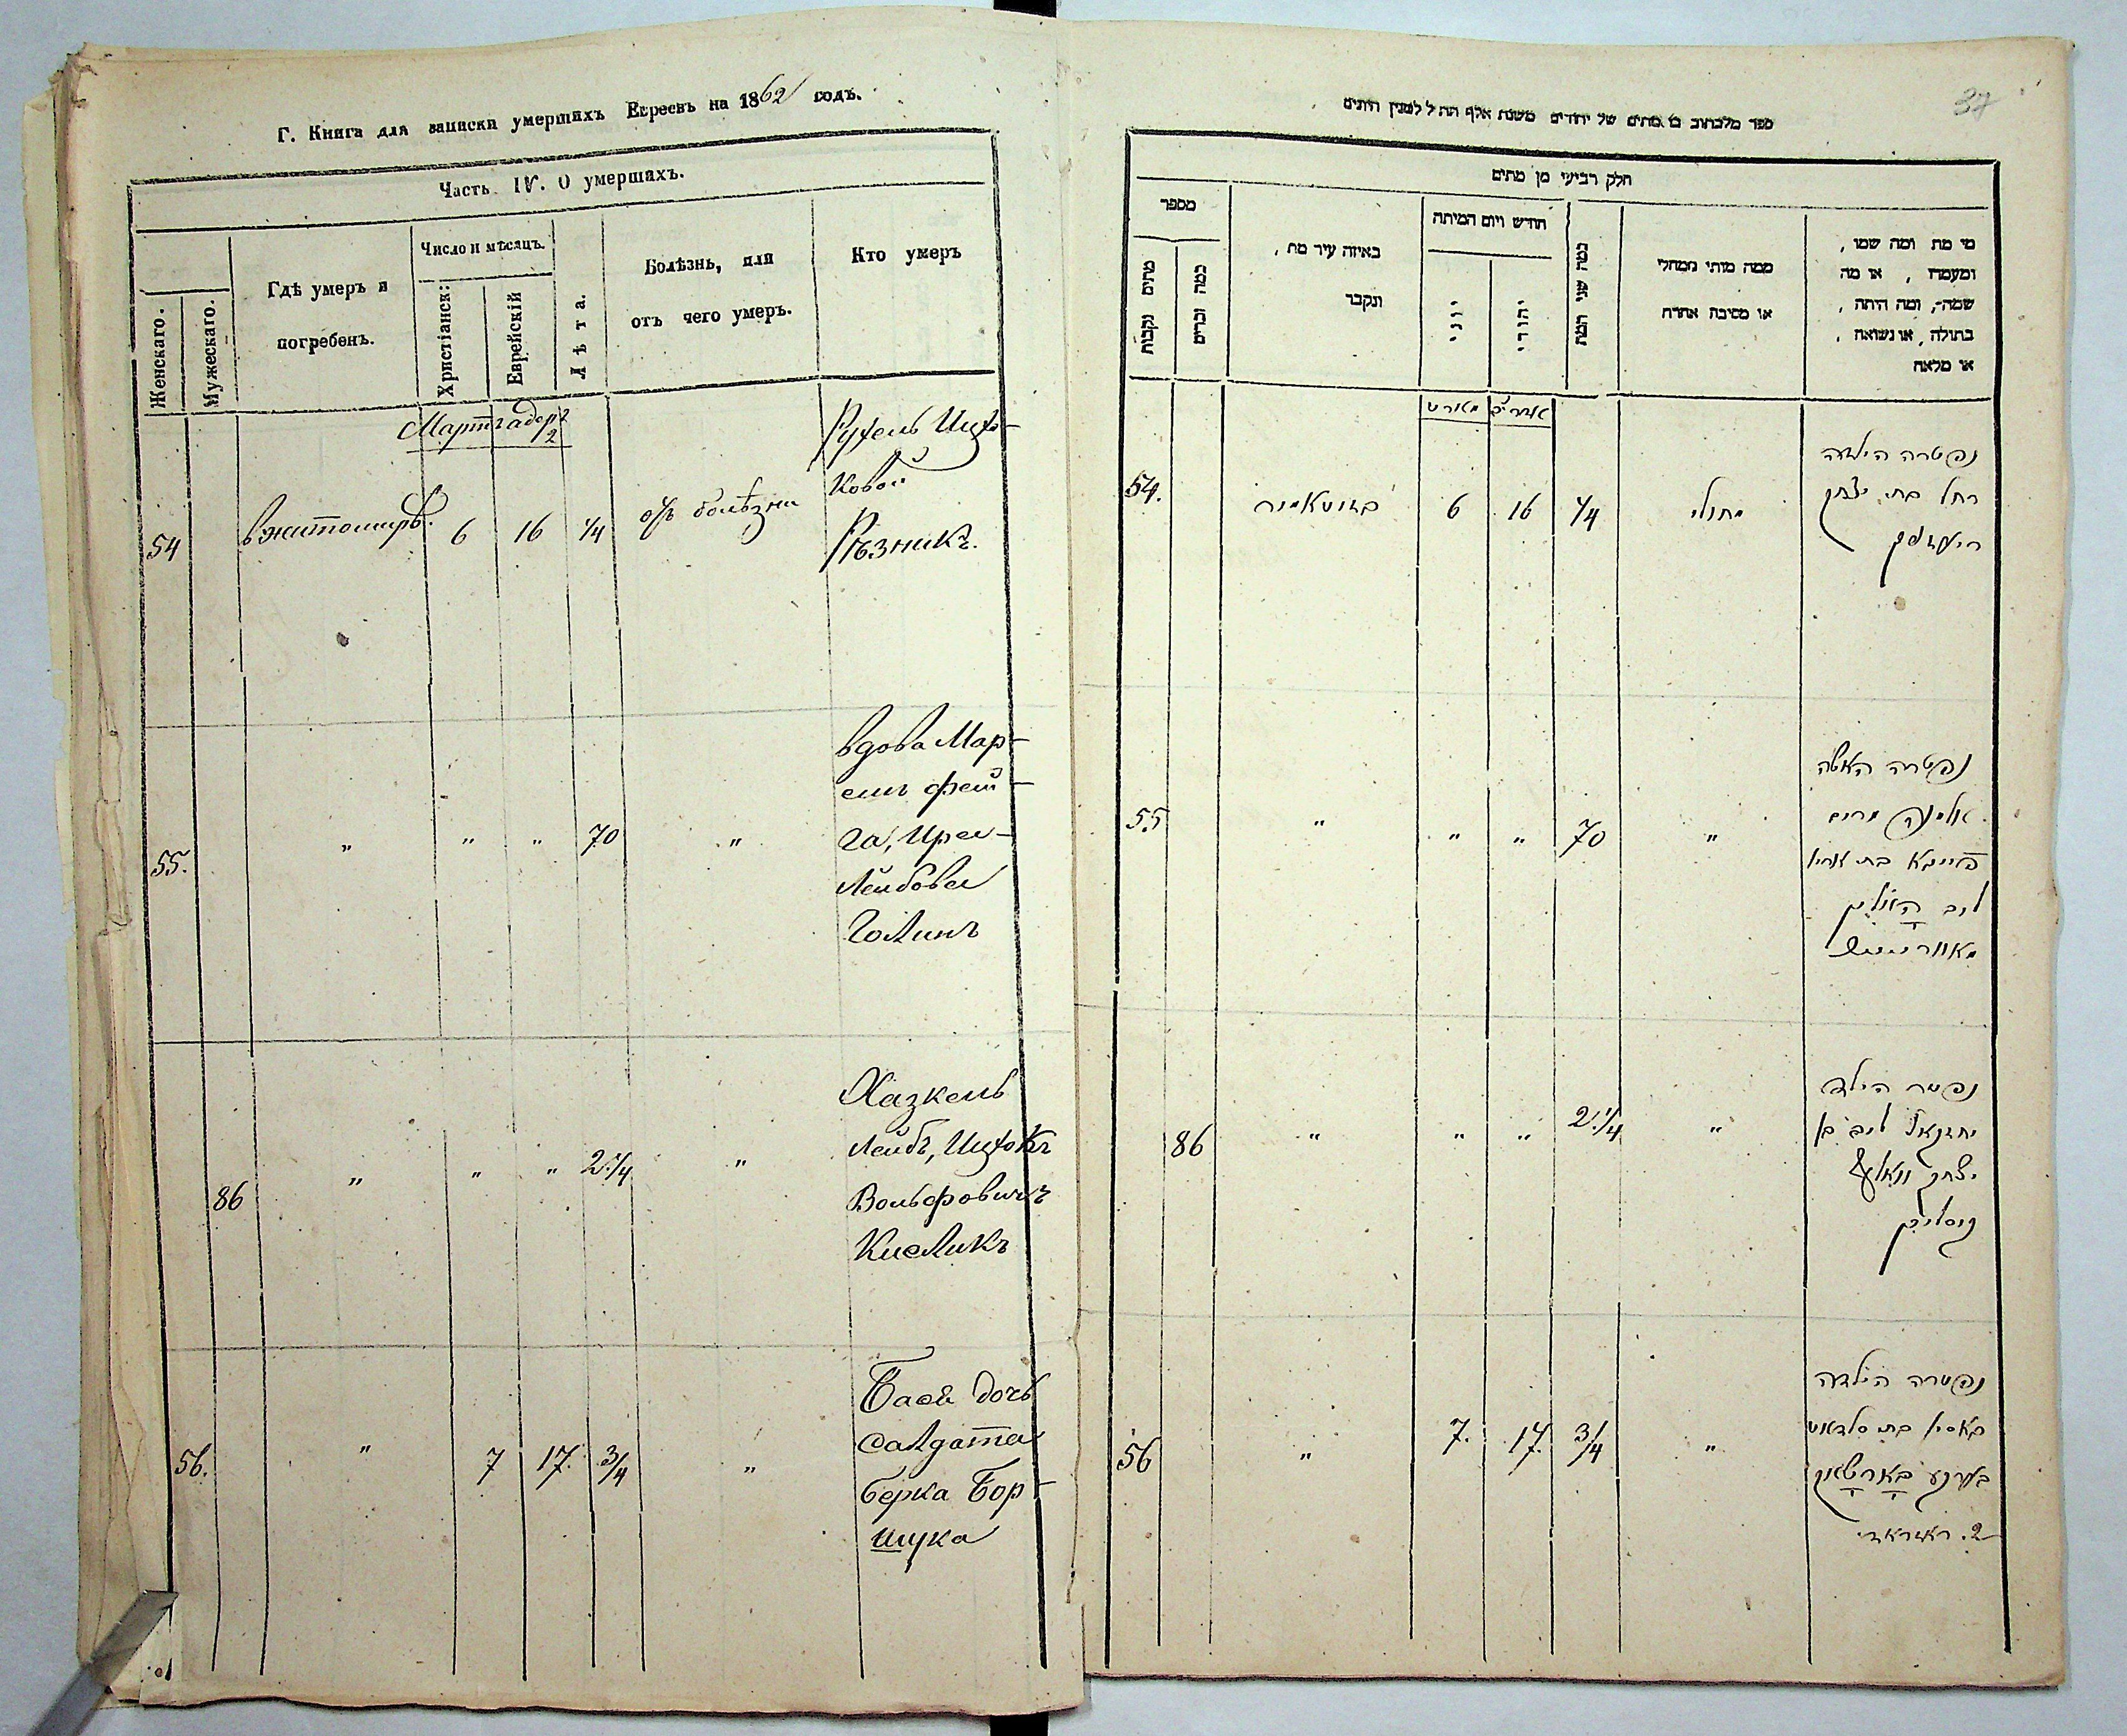 Г. Книга для записки умершихъ Евреевъ на 1862 годъ.
Часть IV. О умершихъ.
Женскаго.
Мужескаго.
Гдѣ умеръ и
погребенъ.
Число и мѣсяцъ.
Христіанск:
Еврейскій
Лѣта.
Болѣзнь, или
отъ чего умеръ.
Кто умеръ
Мартъ адер 2
54
в житомирѣ.
6
16
1/4
отъ болѣзни
Рухель Ицко-
ковой
Рѣзникъ.
55.
"
"
"
70
"
вдова Мар-
емъ фей-
га, Ирел-
Лейбова
Голинъ
86
"
"
"
2 1/4
"
Хазкель
Лейбъ, Ицхокъ
Вольфовичъ
Кисликъ
56.
"
7
17.
3/4
"
Бася дочь
салдата
берка Бор-
щука
37
ספר מלכתוב בו מתים של יהודים משנת אלף תת ל למנין היונים
חלק רביעי מן מתים
מספר
מתים נקבות
כמה זכרים
באיזה עיר מת,
ונקבר
חודש ויום המיתה
יוני
יהודי
כמה שני המת
ממה מותי ממחלי
או מסיבת אחרת
מי מת ומה שמו,
ומעמדו, או מה
שמה, ומה היתה,
בתולה, או נשואה,
או מלאה
מארט
אדר
54.
בזיטאמיר
6
16
1/4
מחולי
נפטרה הילדה
רחל בת יצחק
רעזניק
55
"
"
"
70
"
נפטרה האשה
אלמנה מרים
פייגא בת אריי
ליב האלין
86
"
"
"
2 1/4
"
נפטר הילד
יחזקאל ליב בן
יצחק וואלף
קיסליק
56
"
7.
17.
3/4
"
נפטרה הילדה
באסיא בת סלדאט
בערקע בארשטשוק